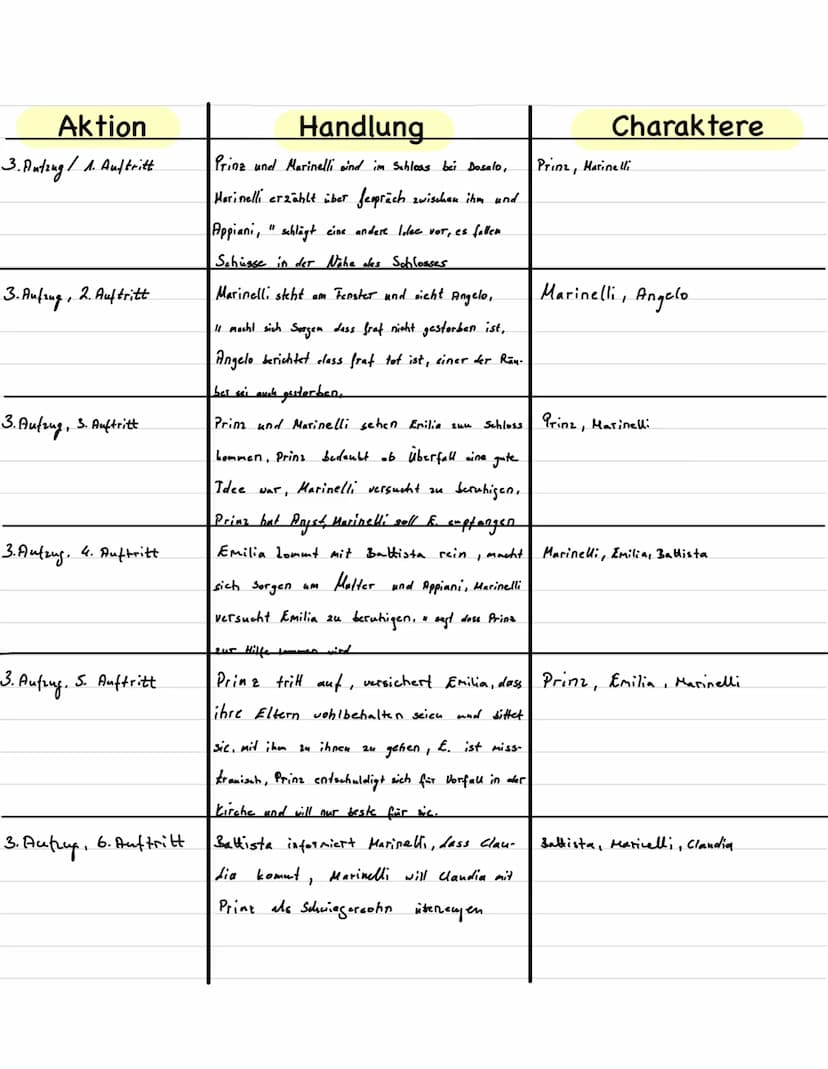 Aktion Handlung Charaktere
3. Aufzug / 1. Auftritt
Prinz und Marinelli sind im Schloss bei Dosalo,
Marinelli erzählt über Gespräch zwischen ihm und
Appiani, " schlägt eine andere Idee vor, es fallen
Schüsse in der Nähe des Schlosses
Prinz, Marinelli
3. Aufzug, 2. Auftritt
Marinelli steht am Fenster und sieht Angelo,
" macht sich Sorgen dass Graf nicht gestorben ist,
Angelo berichtet dass Graf tot ist, einer der Räu-
ber sei auch gestorben.
Marinelli, Angelo
3. Aufzug, 3. Auftritt
Prinz und Marinelli sehen Emilia zum Schloss
kommen, Prinz ob Überfall eine gute
Idee war, Marinelli versucht zu beruhigen,
Prinz hat Angst, Marinelli soll E. empfangen
Prinz, Marinelli
3. Aufzug, 4. Auftritt
Emilia kommt mit Battista rein, macht
sich Sorgen um Mutter und Appiani, Marinelli
versucht Emilia zu beruhigen, " sagt dass Prinz
zur Hilfe kommen wird
Marinelli, Emilia, Battista
3. Aufzug, 5. Auftritt
Prinz tritt auf, versichert Emilia, dass
ihre Eltern wohlbehalten seien und bittet
sie, mit ihm zu ihnen zu gehen, E. ist miss-
trauisch, Prinz entschuldigt sich für Vorfall in der
Kirche und will nur beste für sie.
Prinz, Emilia, Marinelli
3. Aufzug, 6. Auftritt
Battista informiert Marinelli, dass Clau-
dia kommt, Marinelli will Claudia mit
Prinz als Schwiegersohn überzeugen
Battista, Marinelli, Claudia